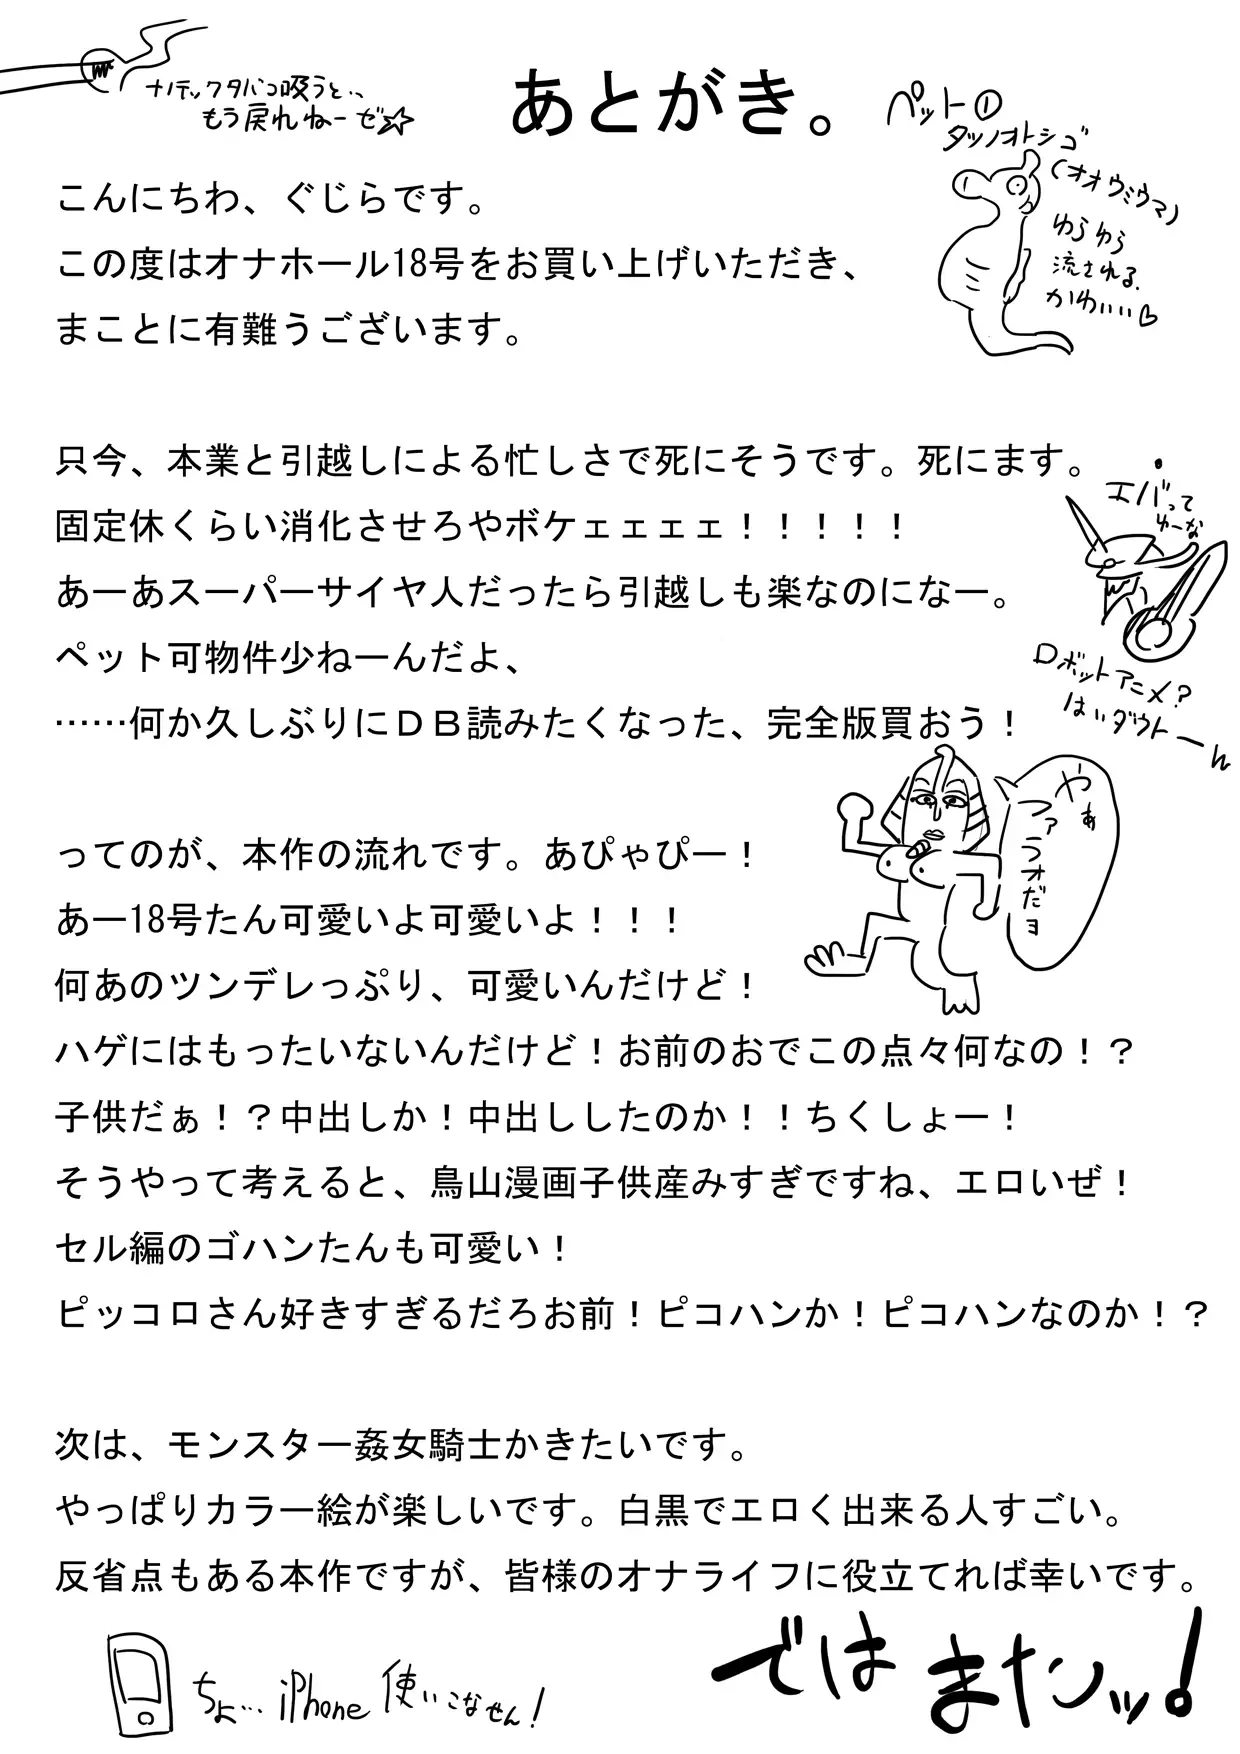 ナノテックタバコ吸うと、、
もう戻れねーぜ☆
あとがき。
ペット①
タツノオトシゴ
(オオウミウマ)
ゆらゆら
流される.
かわいい♡
こんにちわ、ぐじらです。
この度はオナホール18号をお買い上げいただき、
まことに有難うございます。
只今、本業と引越しによる忙しさで死にそうです。死にます。
固定休くらい消化させろやボケェェェェ！！！！！
あーあスーパーサイヤ人だったら引越しも楽なのになー。
ペット可物件少ねーんだよ、
……何か久しぶりにＤＢ読みたくなった、完全版買おう！
エバって
ゆーな
ロボットアニメ?
はいダウトーん
やぁ
ファラオだヨ
ってのが、本作の流れです。あぴゃぴー！
あー18号たん可愛いよ可愛いよ！！！
何あのツンデレっぷり、可愛いんだけど！
ハゲにはもったいないんだけど！お前のおでこの点々何なの！？
子供だぁ！？中出しか！中出ししたのか！！ちくしょー！
そうやって考えると、鳥山漫画子供産みすぎですね、エロいぜ！
セル編のゴハンたんも可愛い！
ピッコロさん好きすぎるだろお前！ピコハンか！ピコハンなのか！？
次は、モンスター姦女騎士かきたいです。
やっぱりカラー絵が楽しいです。白黒でエロく出来る人すごい。
反省点もある本作ですが、皆様のオナライフに役立てれば幸いです。
ちょ…iPhone使いこなせん!
ではまたンッ!